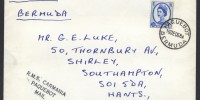 BERMUDA
PAQUEBOT
BERMUDA
MR. G.E. LUKE,
50, THORNBURY AV,
SHIRLEY,
SOUTHAMPTON,
SO1 5DA,
HANTS,
R.M.S. CARMANIA
PAQUEBOT
MAIL